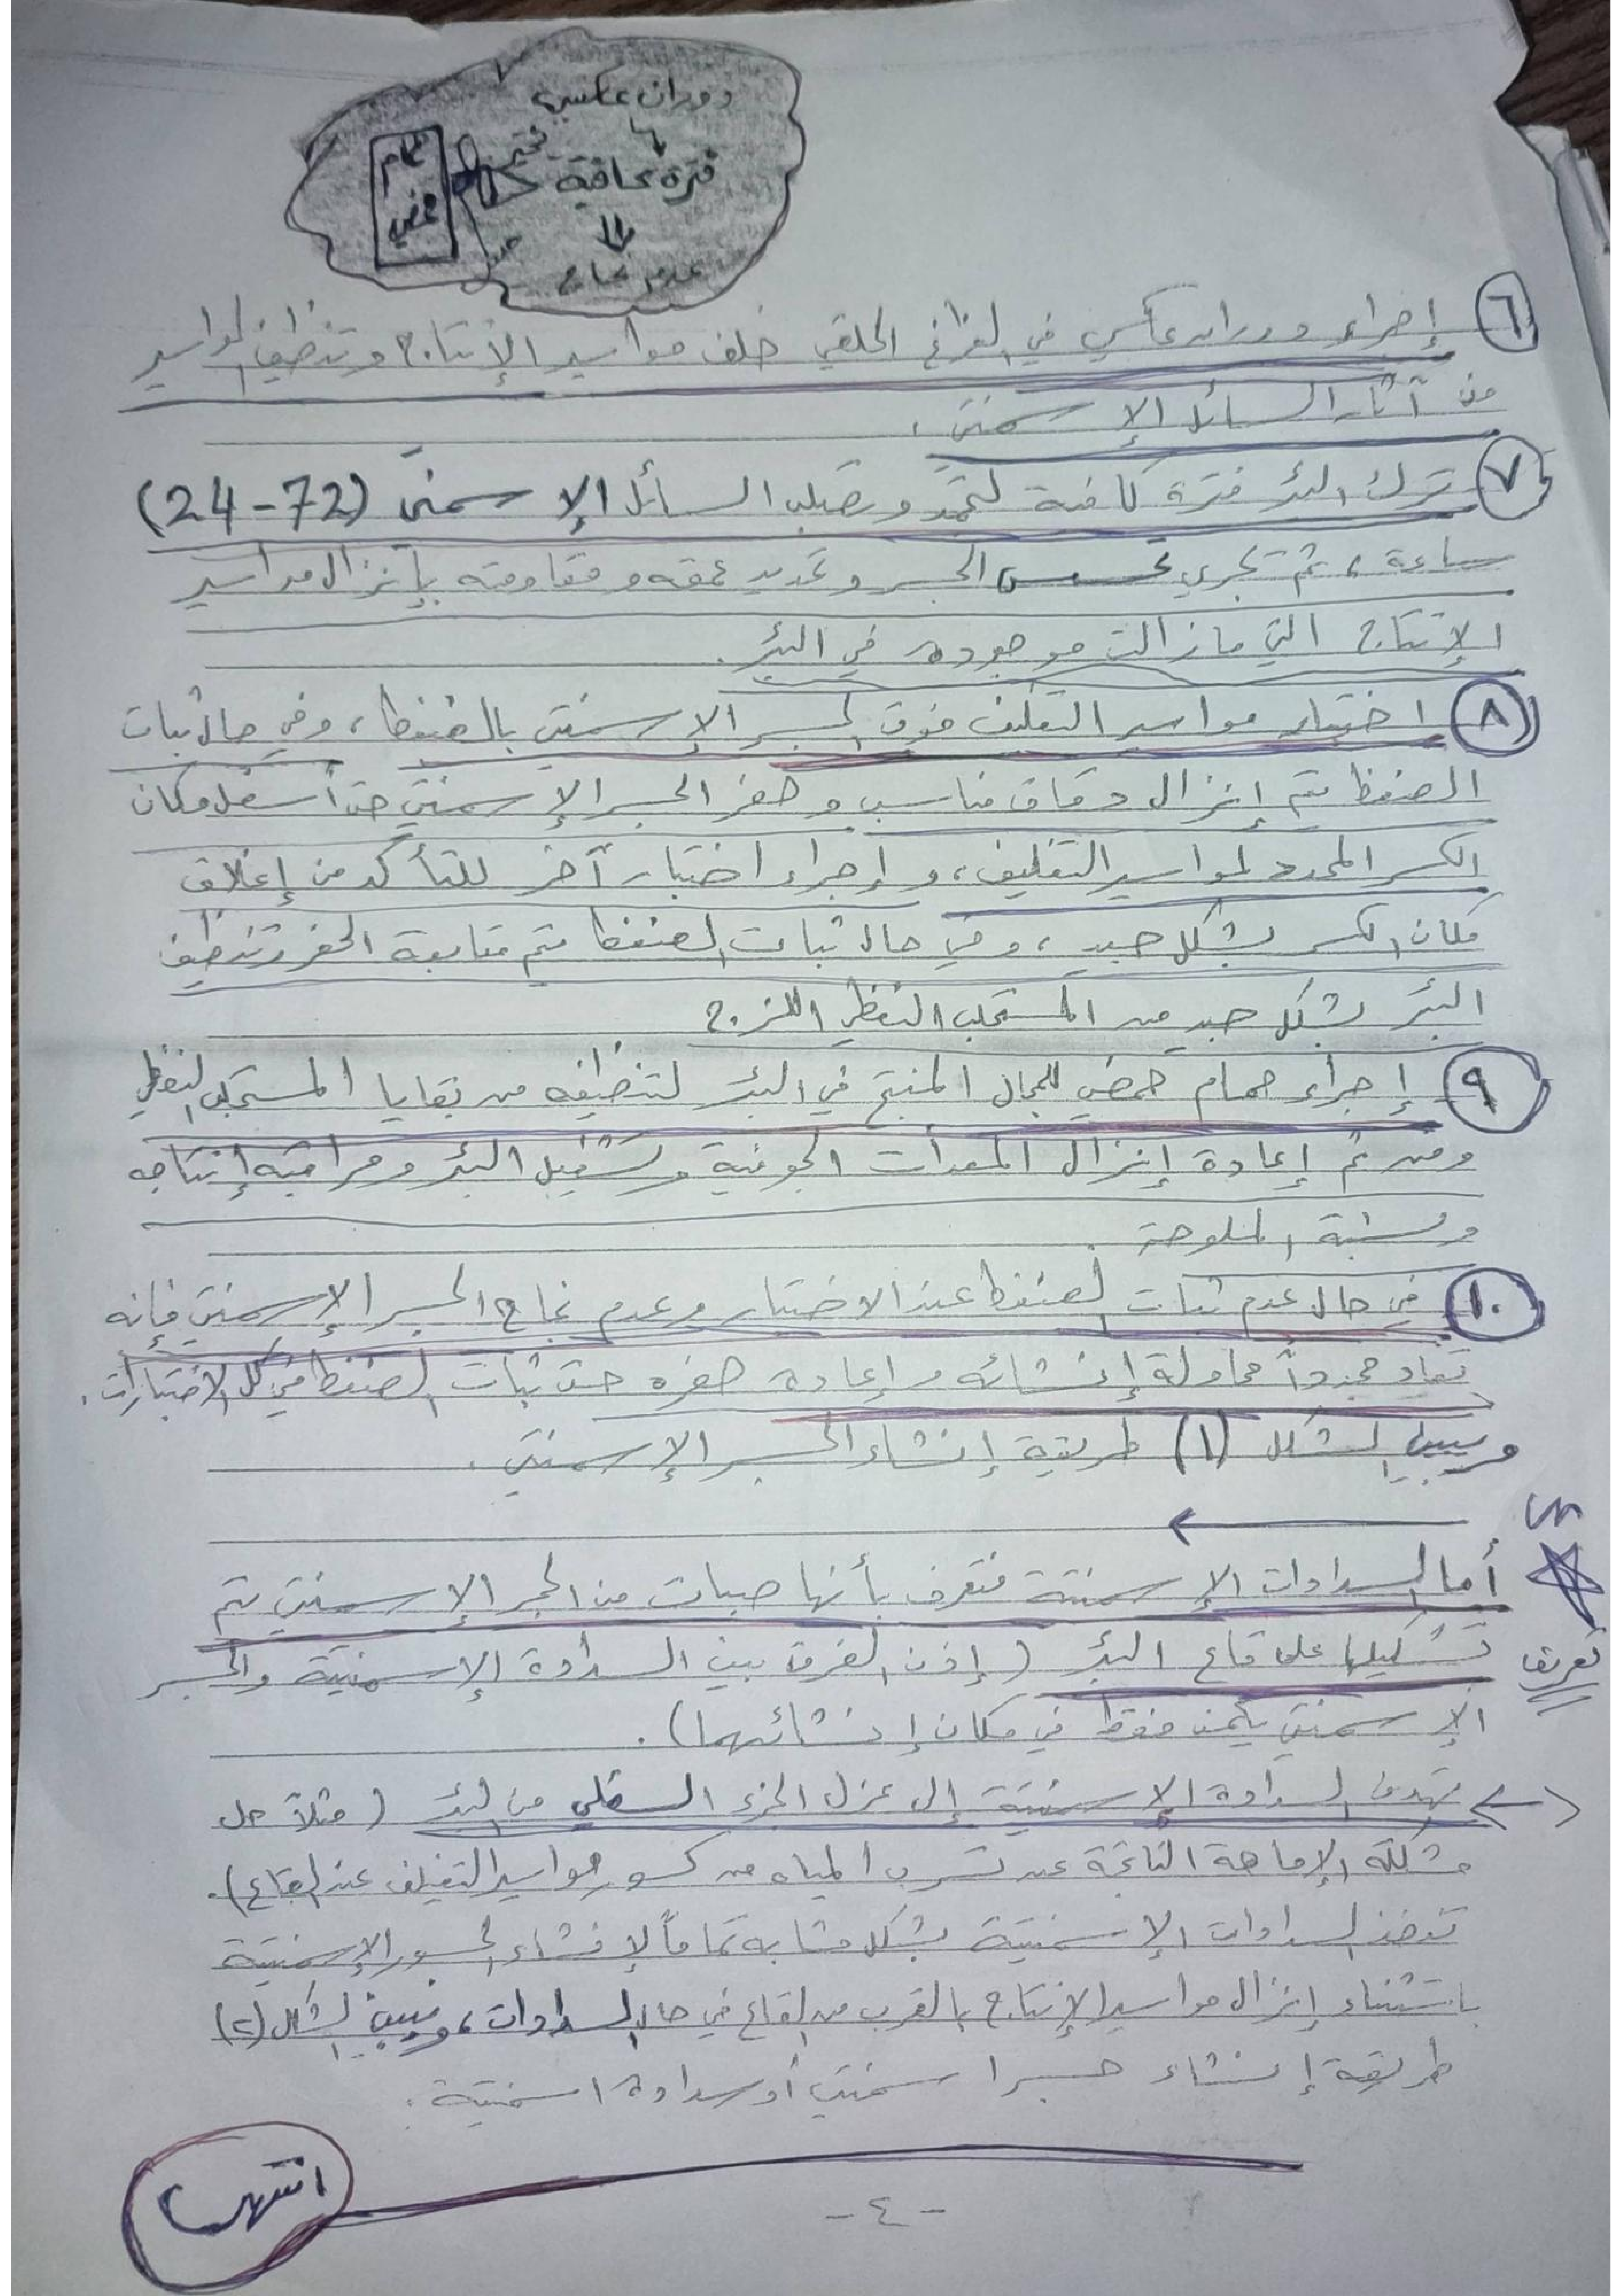 دوران عكسي
فترة كافية
حمام
حمضي
عدم نجاح
٦ إجراء دوران عكسي في الفراغ الحلقي خلف مواسير الإنتاج وتنظيف المواسير
من آثار السائل الإسمنتي .
٧ ترك البئر فترة كافية لتجمد وتصلب السائل الإسمنتي (24-72)
ساعة ، ثم تجري تحسس الجسر وتحديد عمقه ومقاومته بإنزال مواسير
الإنتاج التي مازالت موجودة في البئر .
٨ اختبار مواسير التغليف فوق الجسر الإسمنتي بالضغط ، وفي حال ثبات
الضغط يتم إنزال دقاق مناسب وحفر الجسر الإسمنتي حتى أسفل مكان
الكسر المحدد لمواسير التغليف ، وإجراء اختبار آخر للتأكد من إغلاق
مكان الكسر بشكل جيد ، وفي حال ثبات الضغط يتم متابعة الحفر وتنظيف
البئر بشكل جيد من المستحلب النفطي اللزج
٩ إجراء حمام حمضي للمجال المنتج في البئر لتنظيفه من بقايا المستحلب النفطي
ومن ثم إعادة إنزال المعدات الجوفية وتشغيل البئر ومراقبة إنتاجه
ونسبة الملوحة .
١٠ في حال عدم ثبات الضغط عند الاختبار وعدم نجاح الجسر الإسمنتي فإنه
تعاد مجدداً محاولة إنشائه وإعادة حفره حتى ثبات الضغط في كل الاختبارات .
ويبين الشكل (١) طريقة إنشاء الجسر الإسمنتي .
أما السدادات الإسمنتية فتعرف بأنها صبات من الحجر الإسمنتي يتم
تعريف تشكيلها على قاع البئر (إذن الفرق بين السدادة الإسمنتية والجسر
الإسمنتي يكمن فقط في مكان إنشائهما) .
تهدف السدادة الإسمنتية إلى عزل الجزء السفلي من البئر (مثلاً حل
مشكلة الإماهة الناتجة عن تسرب المياه من كسور مواسير التغليف عند القاع) .
تنفذ السدادات الإسمنتية بشكل مشابه تماماً لإنشاء الجسور الإسمنتية
باستثناء إنزال مواسير الإنتاج بالقرب من القاع في حال السدادات ، ويبين الشكل (٢)
طريقة إنشاء جسر اسمنتي أو سدادة اسمنتية .
انتهت
- ٤ -